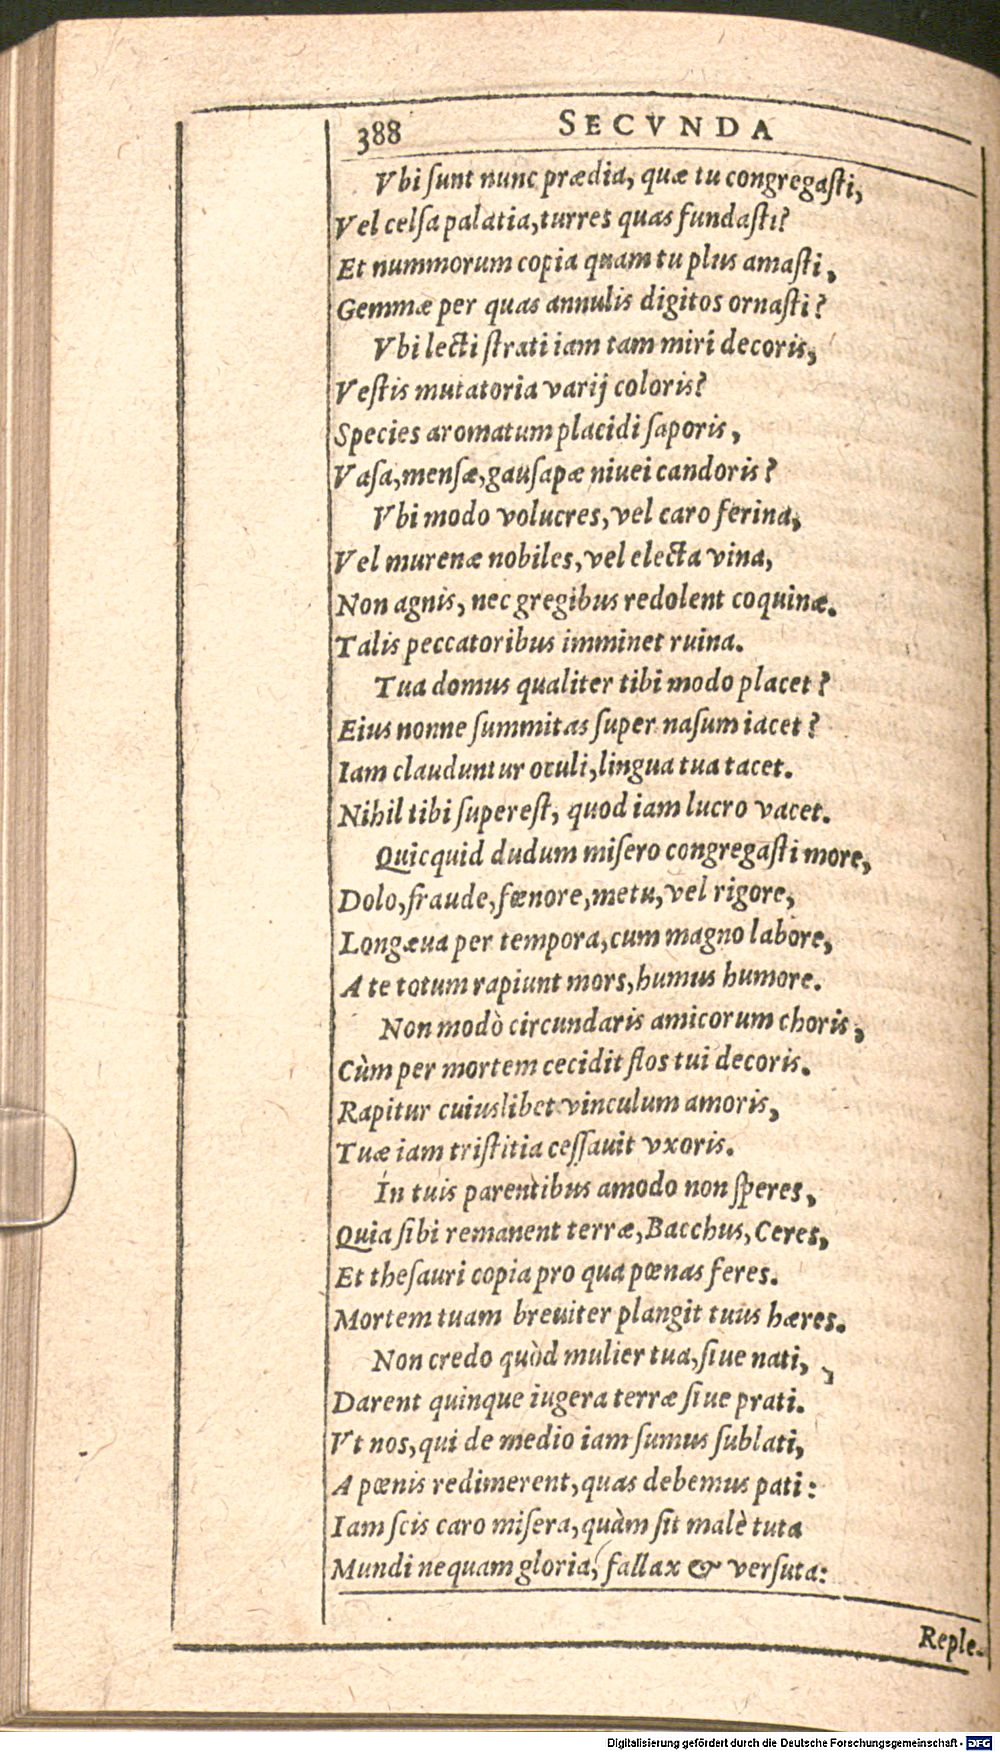 388 SECVNDA
Vbi ſunt nunc prædia, quæ tu congregaſti,
Vel celſa palatia, turres quas fundaſti?
Et nummorum copia quam tu plus amaſti,
Gemmæ per quas annulis digitos ornaſti?
Vbi lecti ſtrati iam tam miri decoris,
Veſtis mutatoria varij coloris?
Species aromatum placidi ſaporis,
Vaſa, menſæ, gauſapæ niuei candoris?
Vbi modo volucres, vel caro ferina,
Vel murenæ nobiles, vel electa vina,
Non agnis, nec gregibus redolent coquinæ.
Talis peccatoribus imminet ruina.
Tua domus qualiter tibi modo placet?
Eius nonne ſummitas ſuper naſum iacet?
Iam clauduntur oculi, lingua tua tacet.
Nihil tibi ſupereſt, quod iam lucro vacet.
Quicquid dudum miſero congregaſti more,
Dolo, fraude, fœnore, metu, vel rigore,
Longæua per tempora, cum magno labore,
A te totum rapiunt mors, humus humore.
Non modò circundaris amicorum choris,
Cùm per mortem cecidit flos tui decoris.
Rapitur cuiuslibet vinculum amoris,
Tuæ iam triſtitia ceſſauit vxoris.
In tuis parentibus amodo non ſperes,
Quia ſibi remanent terræ, Bacchus, Ceres,
Et theſauri copia pro qua pœnas feres.
Mortem tuam breuiter plangit tuus hæres.
Non credo quòd mulier tua, ſiue nati,
Darent quinque iugera terræ ſiue prati.
Vt nos, qui de medio iam ſumus ſublati,
A pœnis redimerent, quas debemus pati:
Iam ſcis caro miſera, quàm ſit malè tuta
Mundi nequam gloria, fallax & verſuta:
Reple-
Digitalisierung gefördert durch die Deutsche Forschungsgemeinschaft - DFG